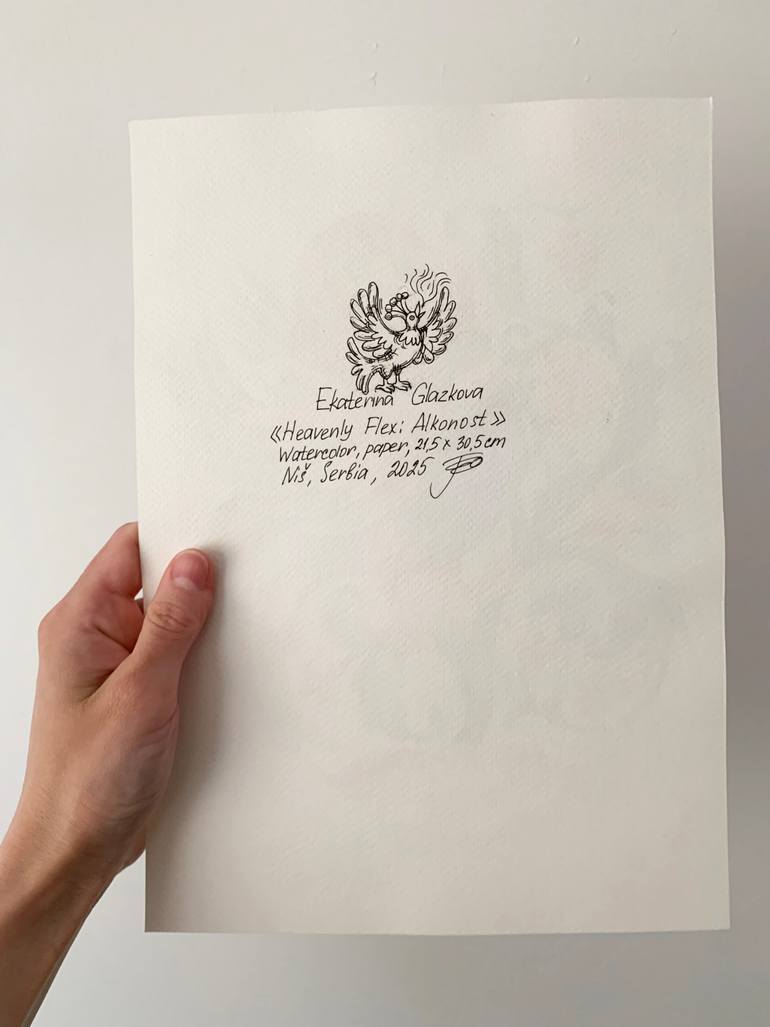 Ekaterina Glazkova
«Heavenly Flex: Alkonost»
Watercolor, paper, 21,5 x 30,5 cm
Niš, Serbia, 2025